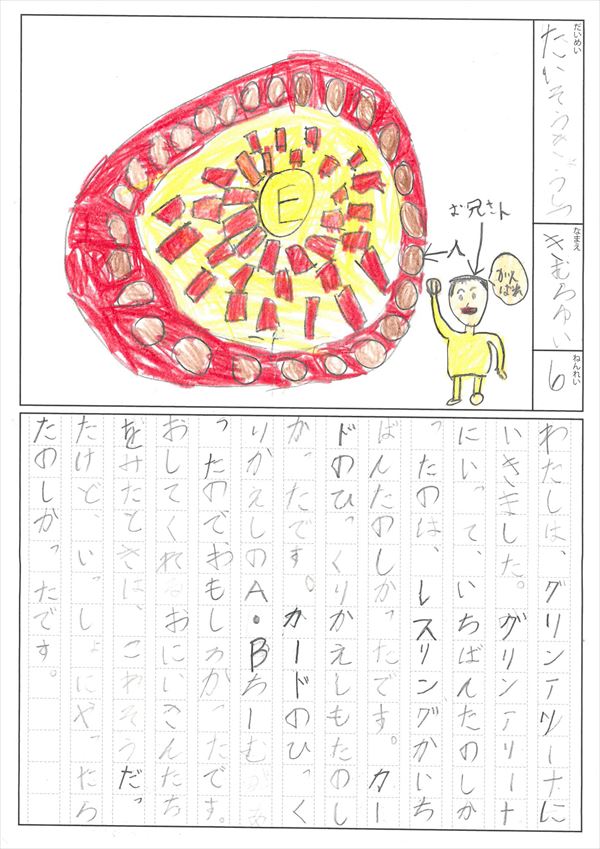 だいめい
なまえ
きむらゆい
ねんれい
6
E
お兄さん
人
がんばれ
わたしは、グリンアリーナに
いきました。グリンアリーナ
にいって、いちばんたのしか
ったのは、レスリングがいち
ばんたのしかったです。カー
ドのひっくりかえしもたのし
かったです。カードのひっく
りかえしのA・Bちーむがあ
ったのでおもしろかったです。
おしてくれるおにいさんたち
をみたときは、こわそうだっ
たけど、いっしょにやったら
たのしかったです。